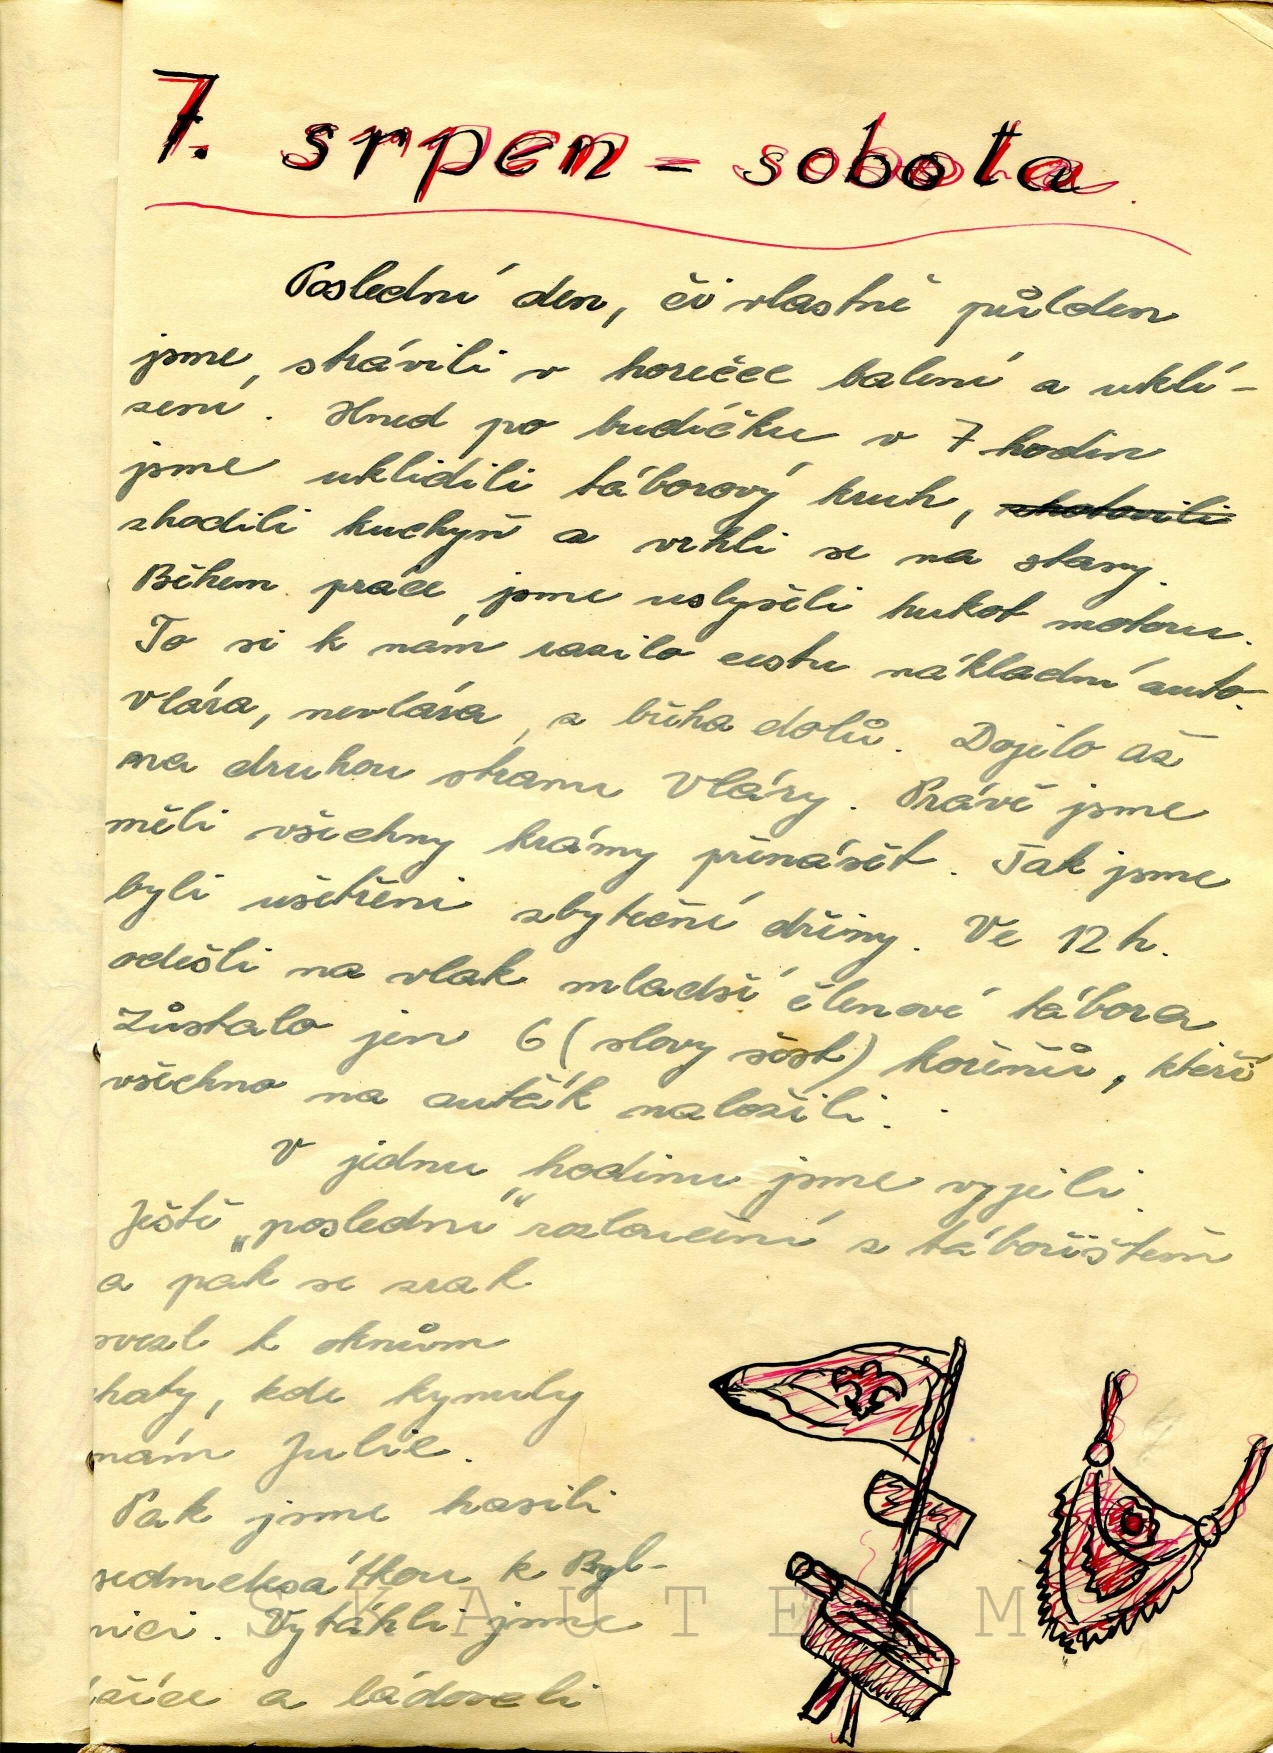 7. srpen - sobota.
Poslední den, či vlastně půlden
jsme strávili v horečce balení a uklí-
zení. Hned po budíčku v 7 hodin
jsme uklidili táborový kruh, zhotovili
shodili kuchyň a vrhli se na stany.
Během práce jsme uslyšeli hukot motoru.
To si k nám razilo cestu nákladní auto.
Vlára, nevlára, z břehu dolů. Dojelo až
na druhou stranu Vláry. Právě jsme
měli všechny krámy přenášet. Tak jsme
byli ušetřeni zbytečné dřiny. Ve 12 h.
odešli na vlak mladší členové tábora
Zůstalo jen 6 (slovy šest) kořenů, kteří
všechno na auťák naložili.
V jednu hodinu jsme vyjeli.
Ještě „poslední" rozloučení s tábořištěm
a pak se zrak
svezl k oknům
chaty, kde kynuly
nám Julie.
Pak jsme hasili
sedmdesátkou k Byl-
nici. Vytáhli jsme
a ládovali
SKAUTEUM